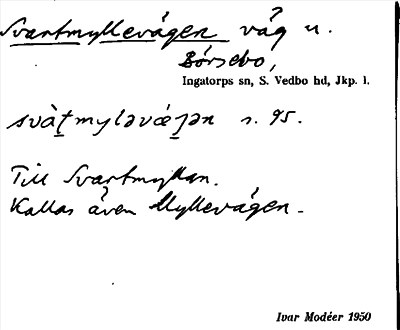 Svartmyllevägen väg n.
Börsebo,
Ingatorps sn, S. Vedbo hd, Jkp. l.
s. 95.
Till Svartmyllan.
Kallas även Myllevägen.
Ivar Modéer 1950